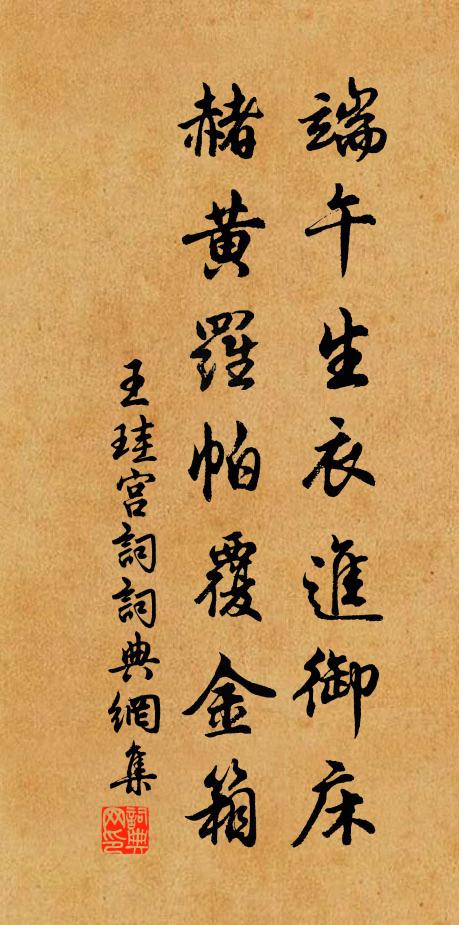 端午生衣進御床
赭黃羅帕覆金箱
王珪宮詞詞典網集
詞典網印